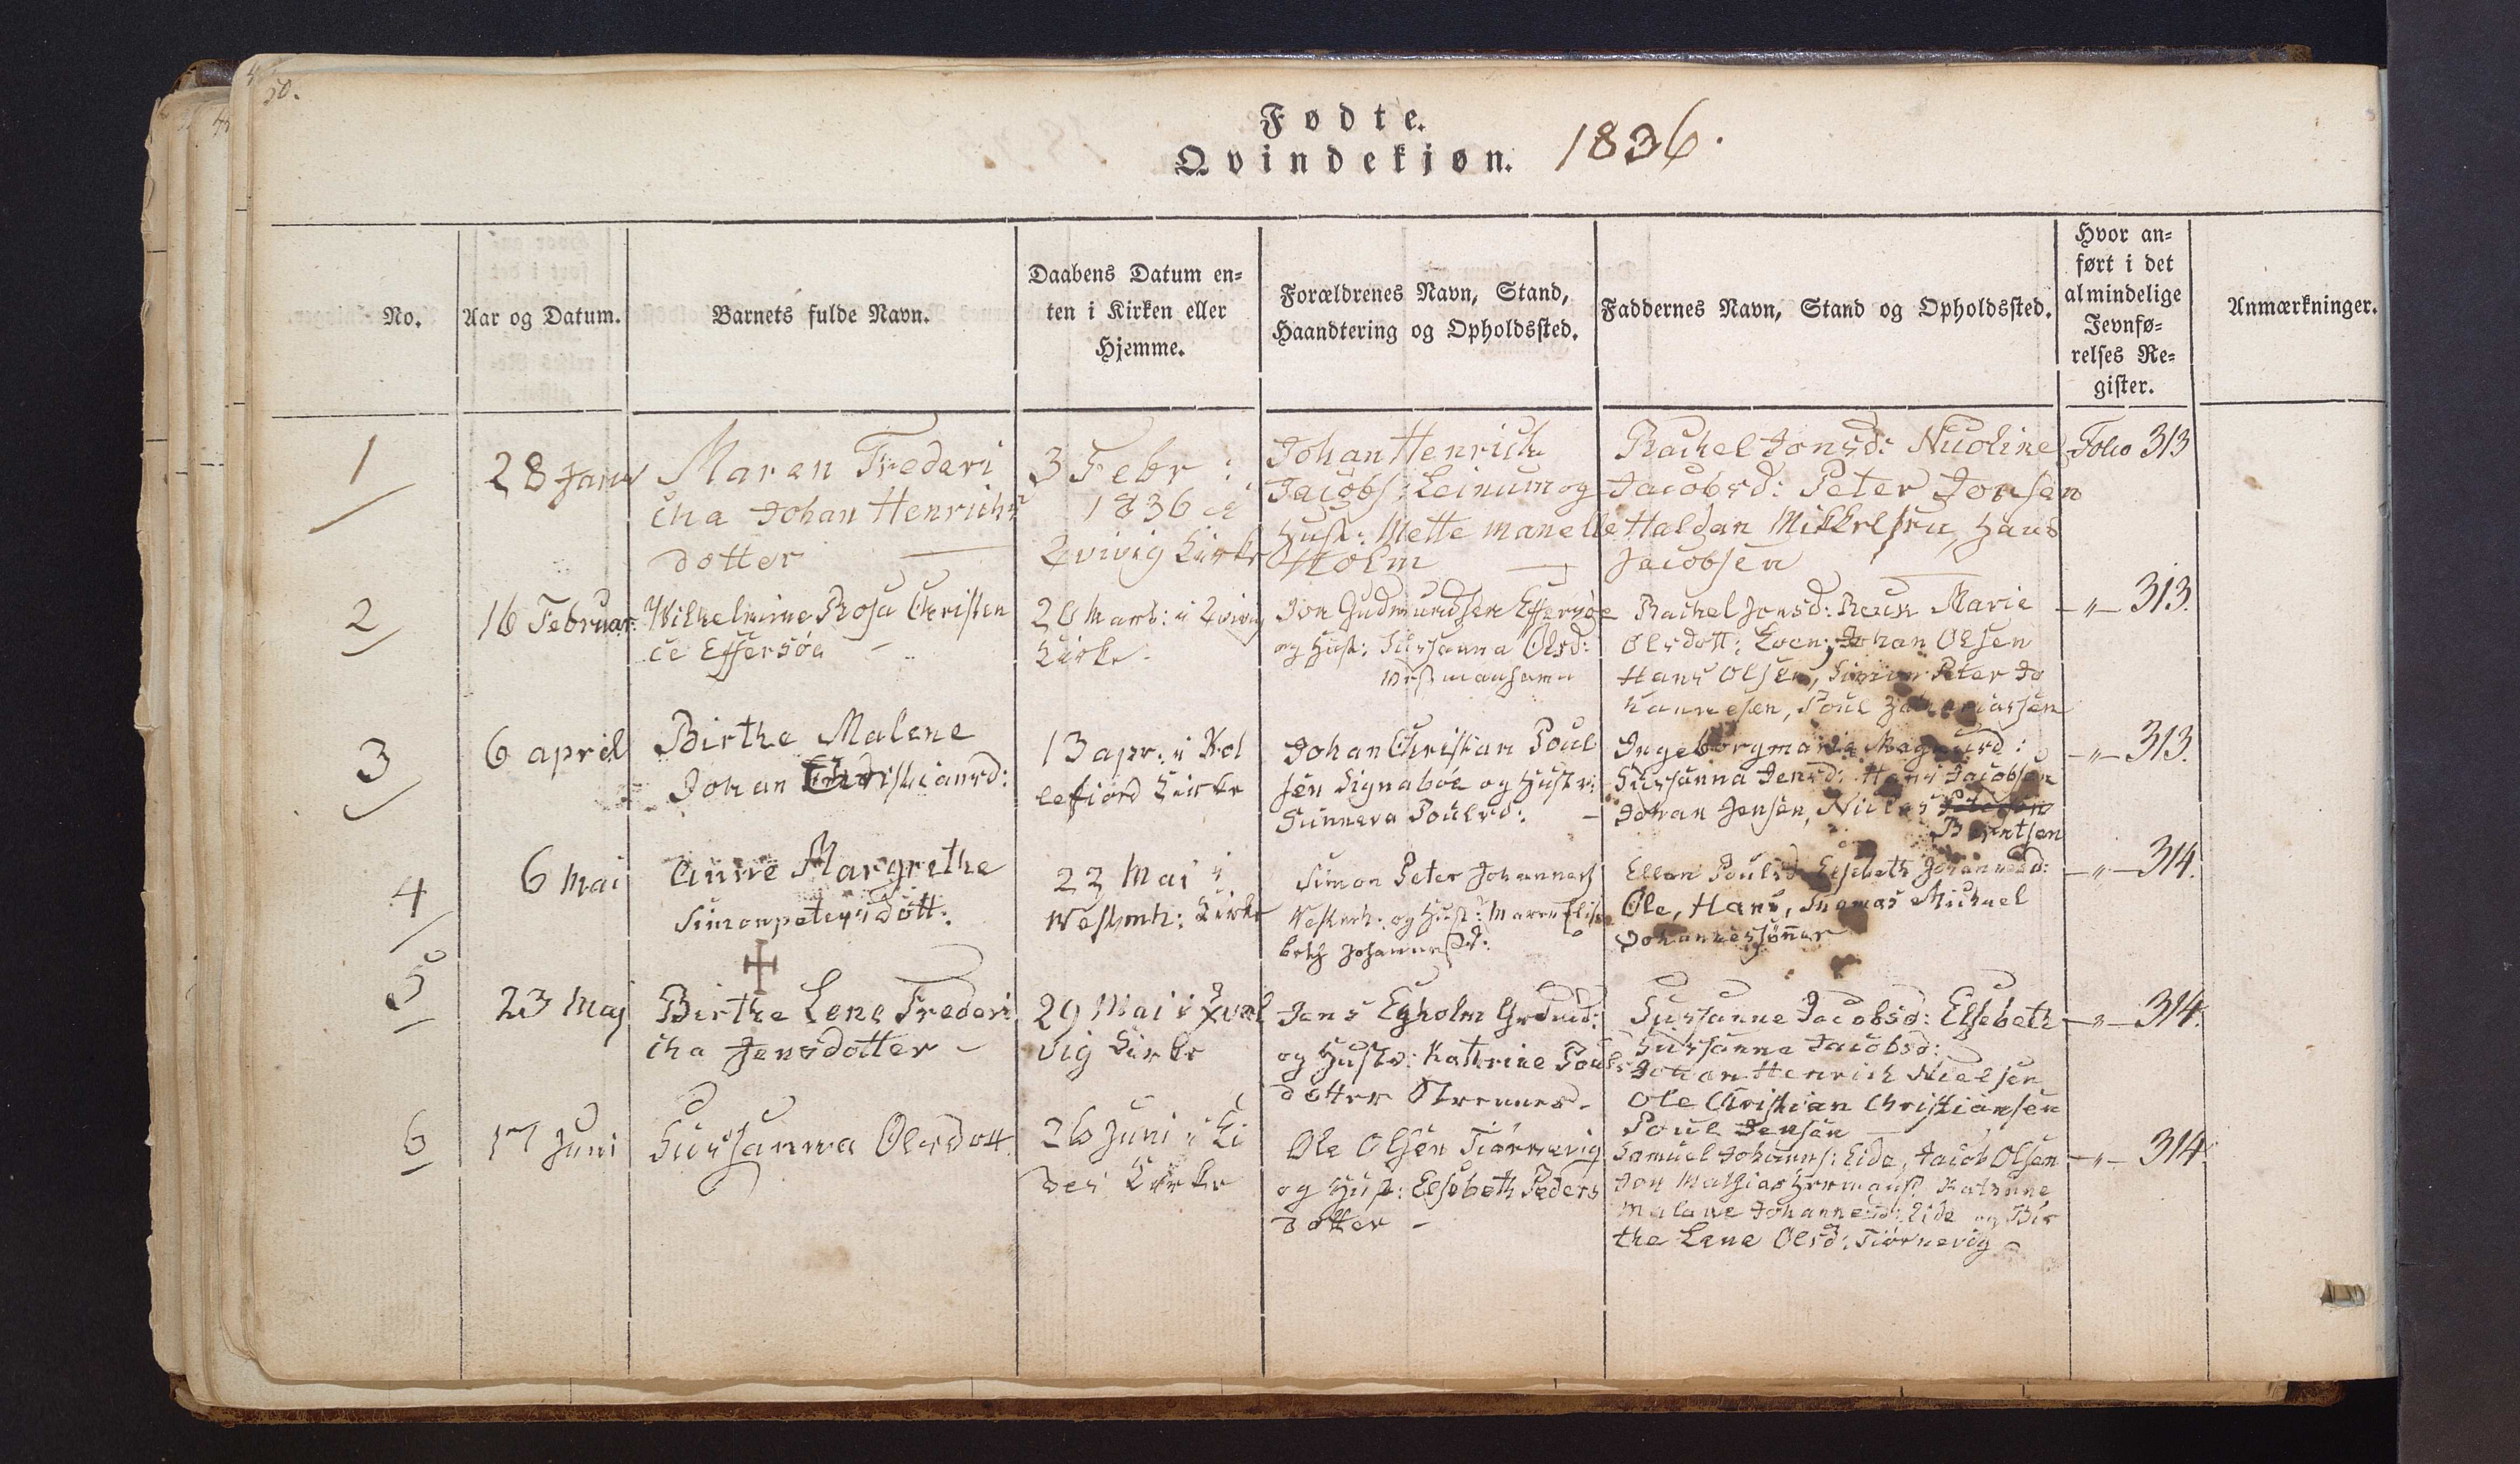 50.
Fødte.
Qvindekjøn. 1836.
No.
Aar og Datum.
Barnets fulde Navn.
Daabens Datum en-
ten i Kirken eller
Hjemme.
Forældrenes Navn, Stand,
Haandtering og Opholdssted.
Faddernes Navn, Stand og Opholdssted.
Hvor an-
ført i det
almindelige
Jevnfø-
relses Re-
gister.
Anmærkninger.
1
28 Janu
Maren Frederi
cha Johan Henrichs
dotter
3 Febr:
1836 i
Qvivig Kirke
Johan Henrich
Jacobs: Leinum og
Hust: Mette Manelle
Holm
Rachel Jonsd: Nicoline
Jacobsd: Peter Jonsen
Haldan Mikkelsen, Hans
Jacobsen
Folio 313
2
16 Februar:
Wilhelmine Rosa Christen
ce Effersöe
20 Marts: i Qvivig
Kirke
Jon Gudmundsen Effersöe
og Hust: Sussanna Olsd:
Vestmanhavn
Rachel Jonsd: Marie
Olsdott: Johan Olsen
Hans Olsen, Simon Peter Jo
hannesen, Poul Zachariassen
-„- 313.
3
6 april
Birthe Malene
Johan Christiansd:
13 apr: i Kol
lefiord Kirke
Johan Christian Poul
sen Signaböe og Hustr:
Sunneva Poulsd:
Ingeborgmaria Magnusd:
Sussanna Jensd: Hans Jacobsen
Johan Jensen, Niclas Petersen
Berntsen
-„- 313.
4
6 Mai
Anne Margrethe
Simonpetersdott:
23 Mai i
Vestmh: Kirke
Simon Peter Johannes
Vestmh: og Hust: Maren Elisa
beth Johannesd:
Ellen Poulsd: Elsebeth Johannesd:
Ole, Hans, Thomas Michael
Johannessönner
-„- 314.
5
23 Maj
Birthe Lene Frederi
cha Jensdotter
29 Mai i Hval
vig Kirke
Jens Egholm
og Hustr: Kathrine Pouls
dotter Strømnes
Sussanne Jacobsd: Elsebeth
Sussanne Jacobsd:
Johan Henrich Nielsen
Ole Christian Christiansen
Poul Jensen
-„- 314.
6
17 Juni
Sussanna Olesdott
26 Juni i Ei
dei Kirke
Ole Olsen Tiörnevig
og Hust: Elsebeth Peders
dotter
Samuel Johanns: Eide, Jacob Olsen
Jon Mathias Hermans: Katrine
Malene Johannesd: Eide og Bir
the Lene Olsd: Tiörnevig
-„- 314.